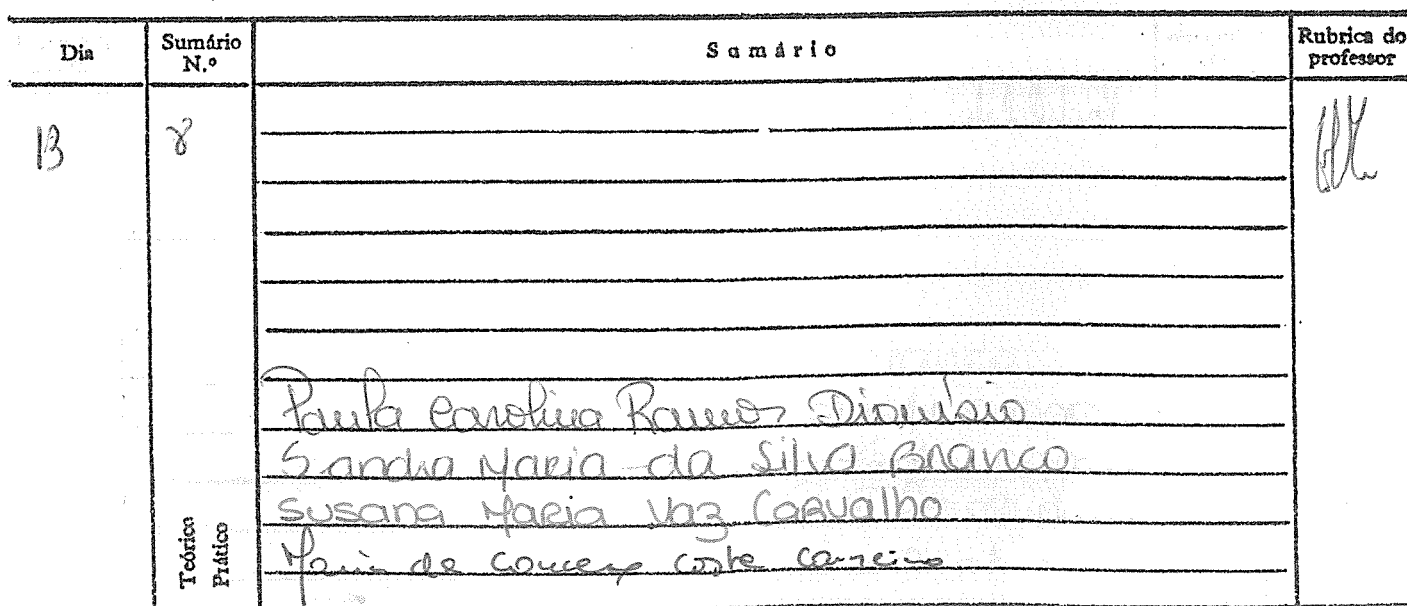 Dia Sumário N.º Sumário Rubrica do professor
13 8
Paula Carolina Ramos Dionísio
Sandra Maria da Silva Branco
Susana Maria Vaz Carvalho
Maria da Costa Carneiro
Teórico
Prático